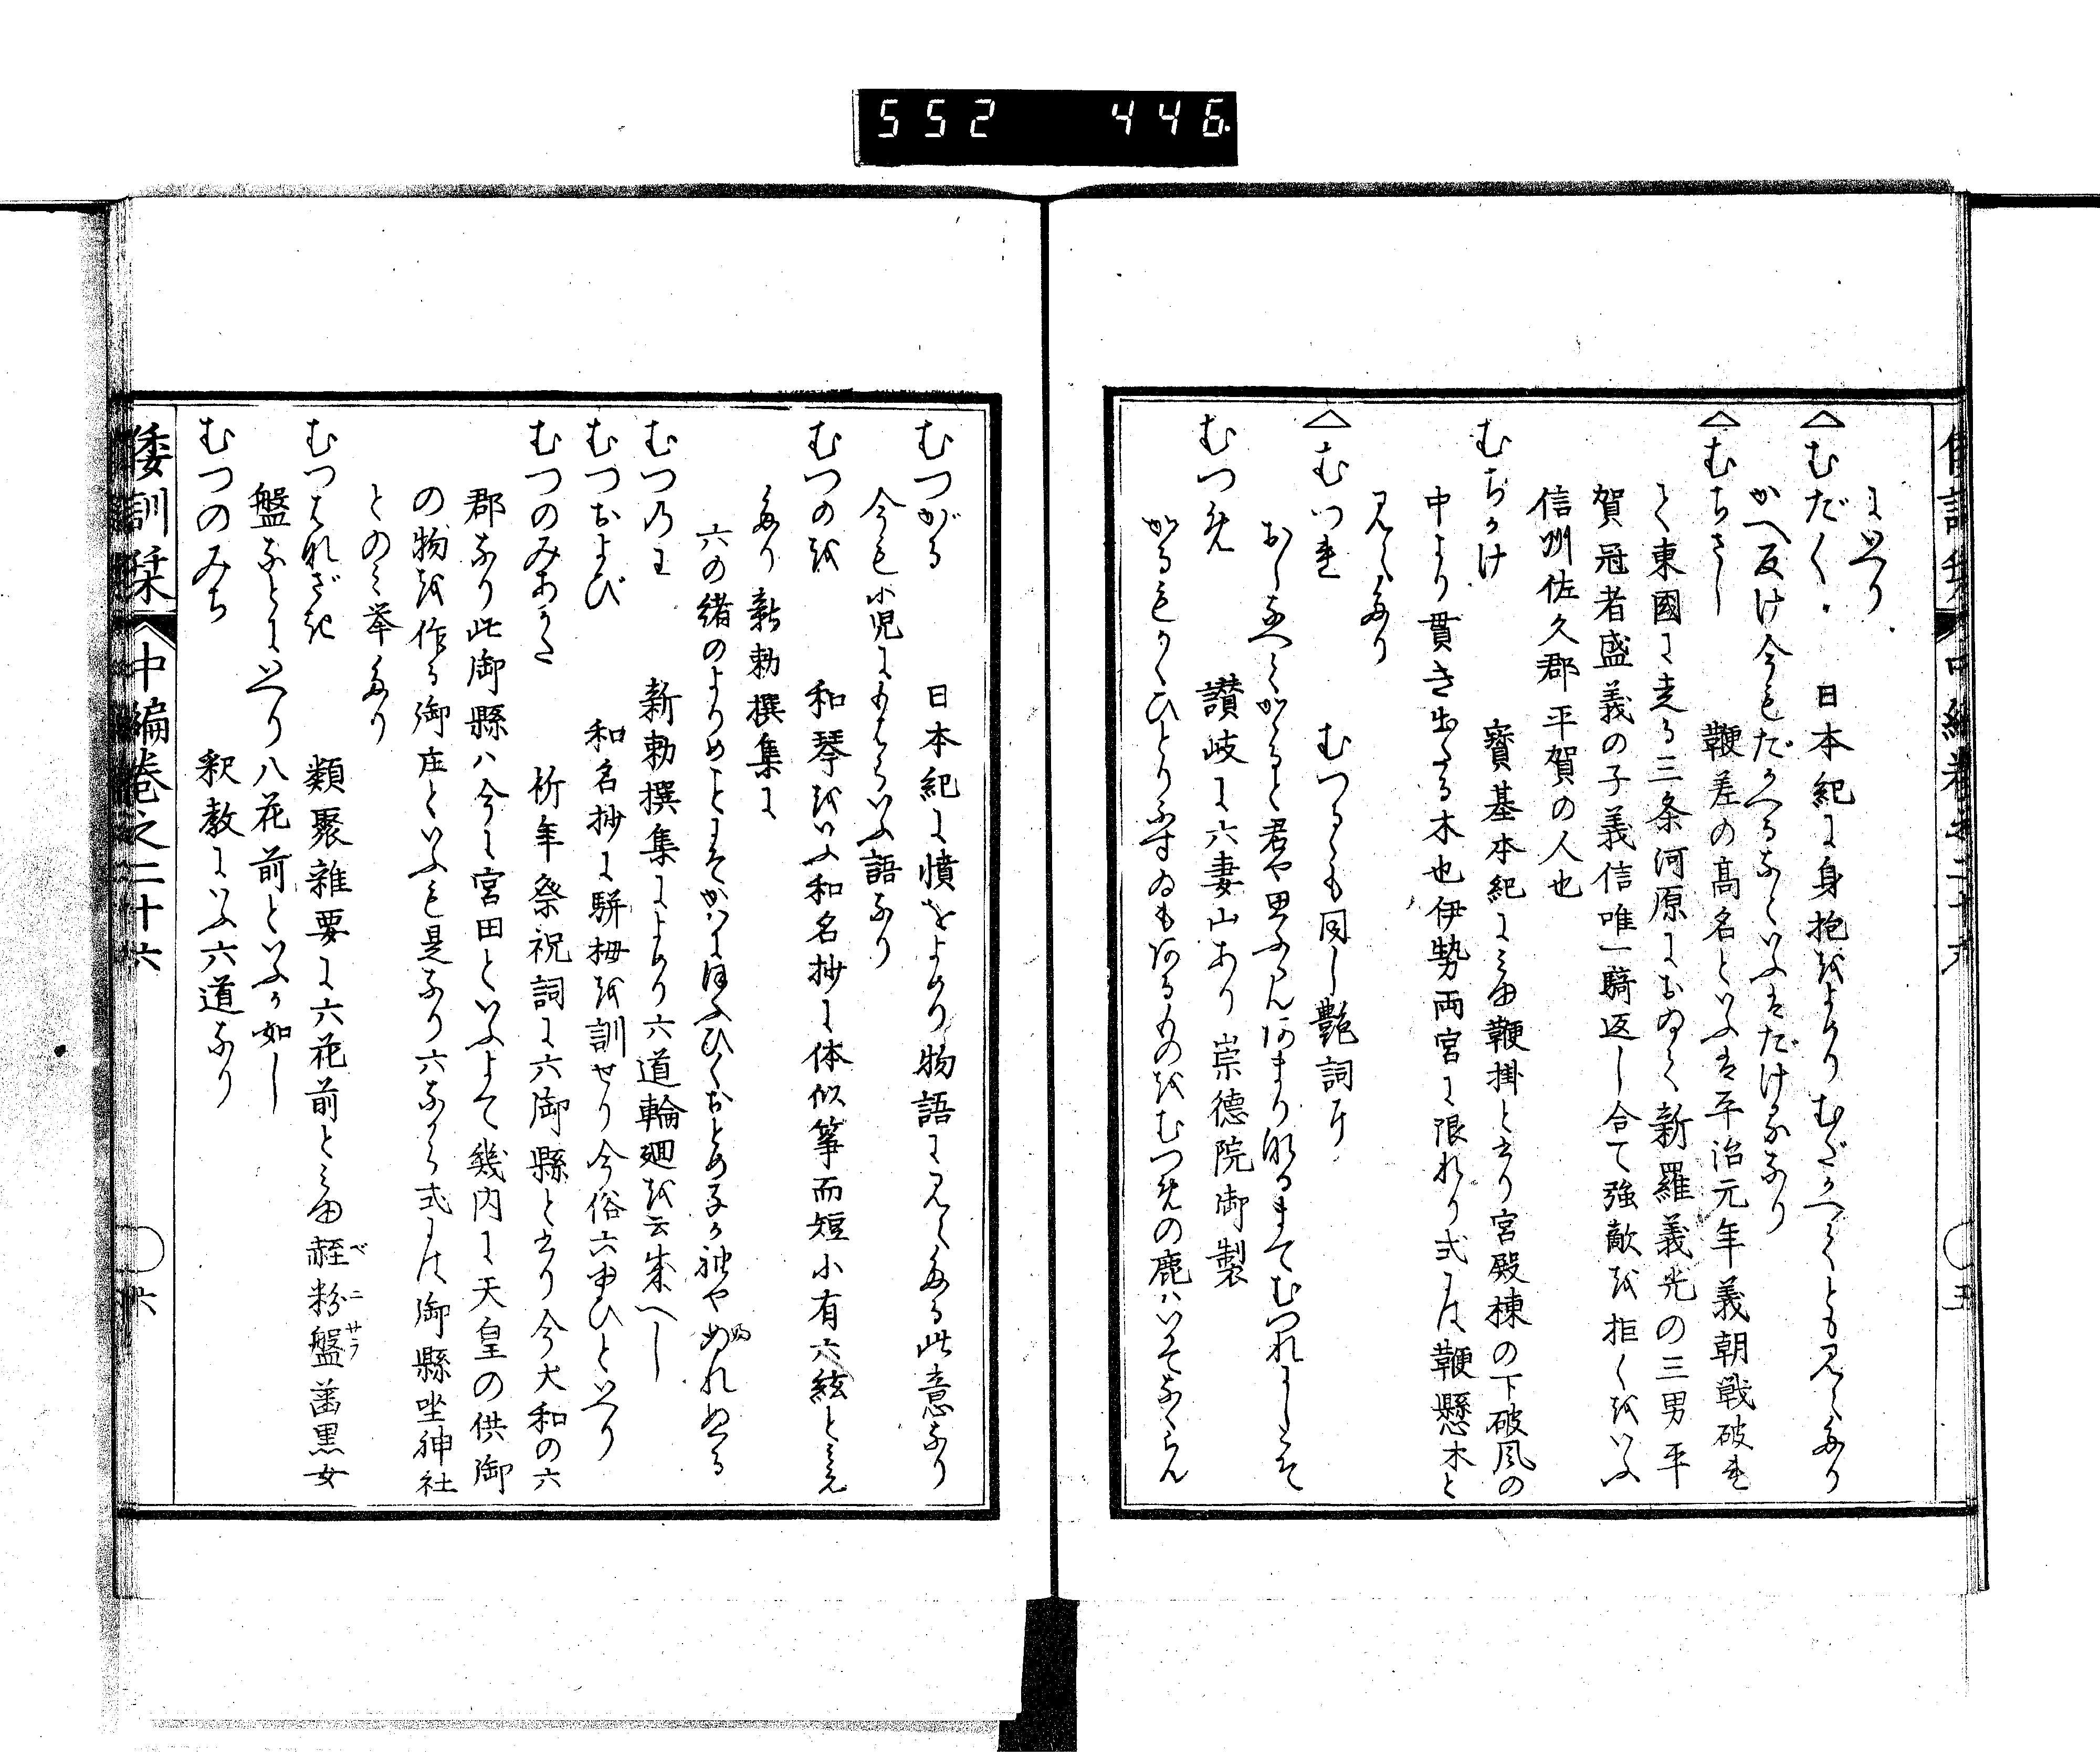 552 446
にいへり
△むだく 日本紀に身抱をよめりむだかへてとも見えたり
かへ反け今もだかへるなといふはだけるなり
△むちさし 鞭差の高名といふは平治元年義朝戦破れ
て東國に走る三条河原において新羅義光の三男平
賀冠者盛義の子義信唯一騎返し合て強敵を拒くをいふ
信州佐久郡平賀の人也
むちかけ 寳基本紀にみゆ鞭掛と書り宮殿棟の下破風の
中より貫き出たる木也伊勢両宮に限れり式には鞭懸木と
見えたり
△むつれ むつるも同し艶詞に
おしなへてかくると君や思ふらんあまりなるまてむつれにしそ
むつま 讃岐に六妻山あり崇徳院御製
かるもかくひとりふすゐもあるものをむつまの鹿はいそなくらん
むつがる 日本紀に憤をよめり物語に見えたる此意なり
今も小児にもはらいふ語なり
むつのを 和琴をいふ和名抄に体似筝而短小有六絃とみえ
たり新勅撰集に
六の緒のよりめことにそかはにほふひくおとめ子か袖やぬれぬる
むつのわ 新勅撰集によめり六道輪廻を云成へし
むつおよび 和名抄に駢拇を訓せり今俗六ゆひといへり
むつのみあかた 祈年祭祝詞に六御縣と書り今大和の六
郡なり此御縣ハ今に宮田といふよて幾内に天皇の供御
の物を作る御庄といふも是なり六なから式には御縣坐神社
とのみ挙たり
むつはなざき 類聚雑要に六花前とみゆ䞓粉盤歯黒女
ベニサラ
盤なとにいへり八花前といふか如し
むつのみち 釈教にいふ六道なり
倭訓栞 中編巻之二十六